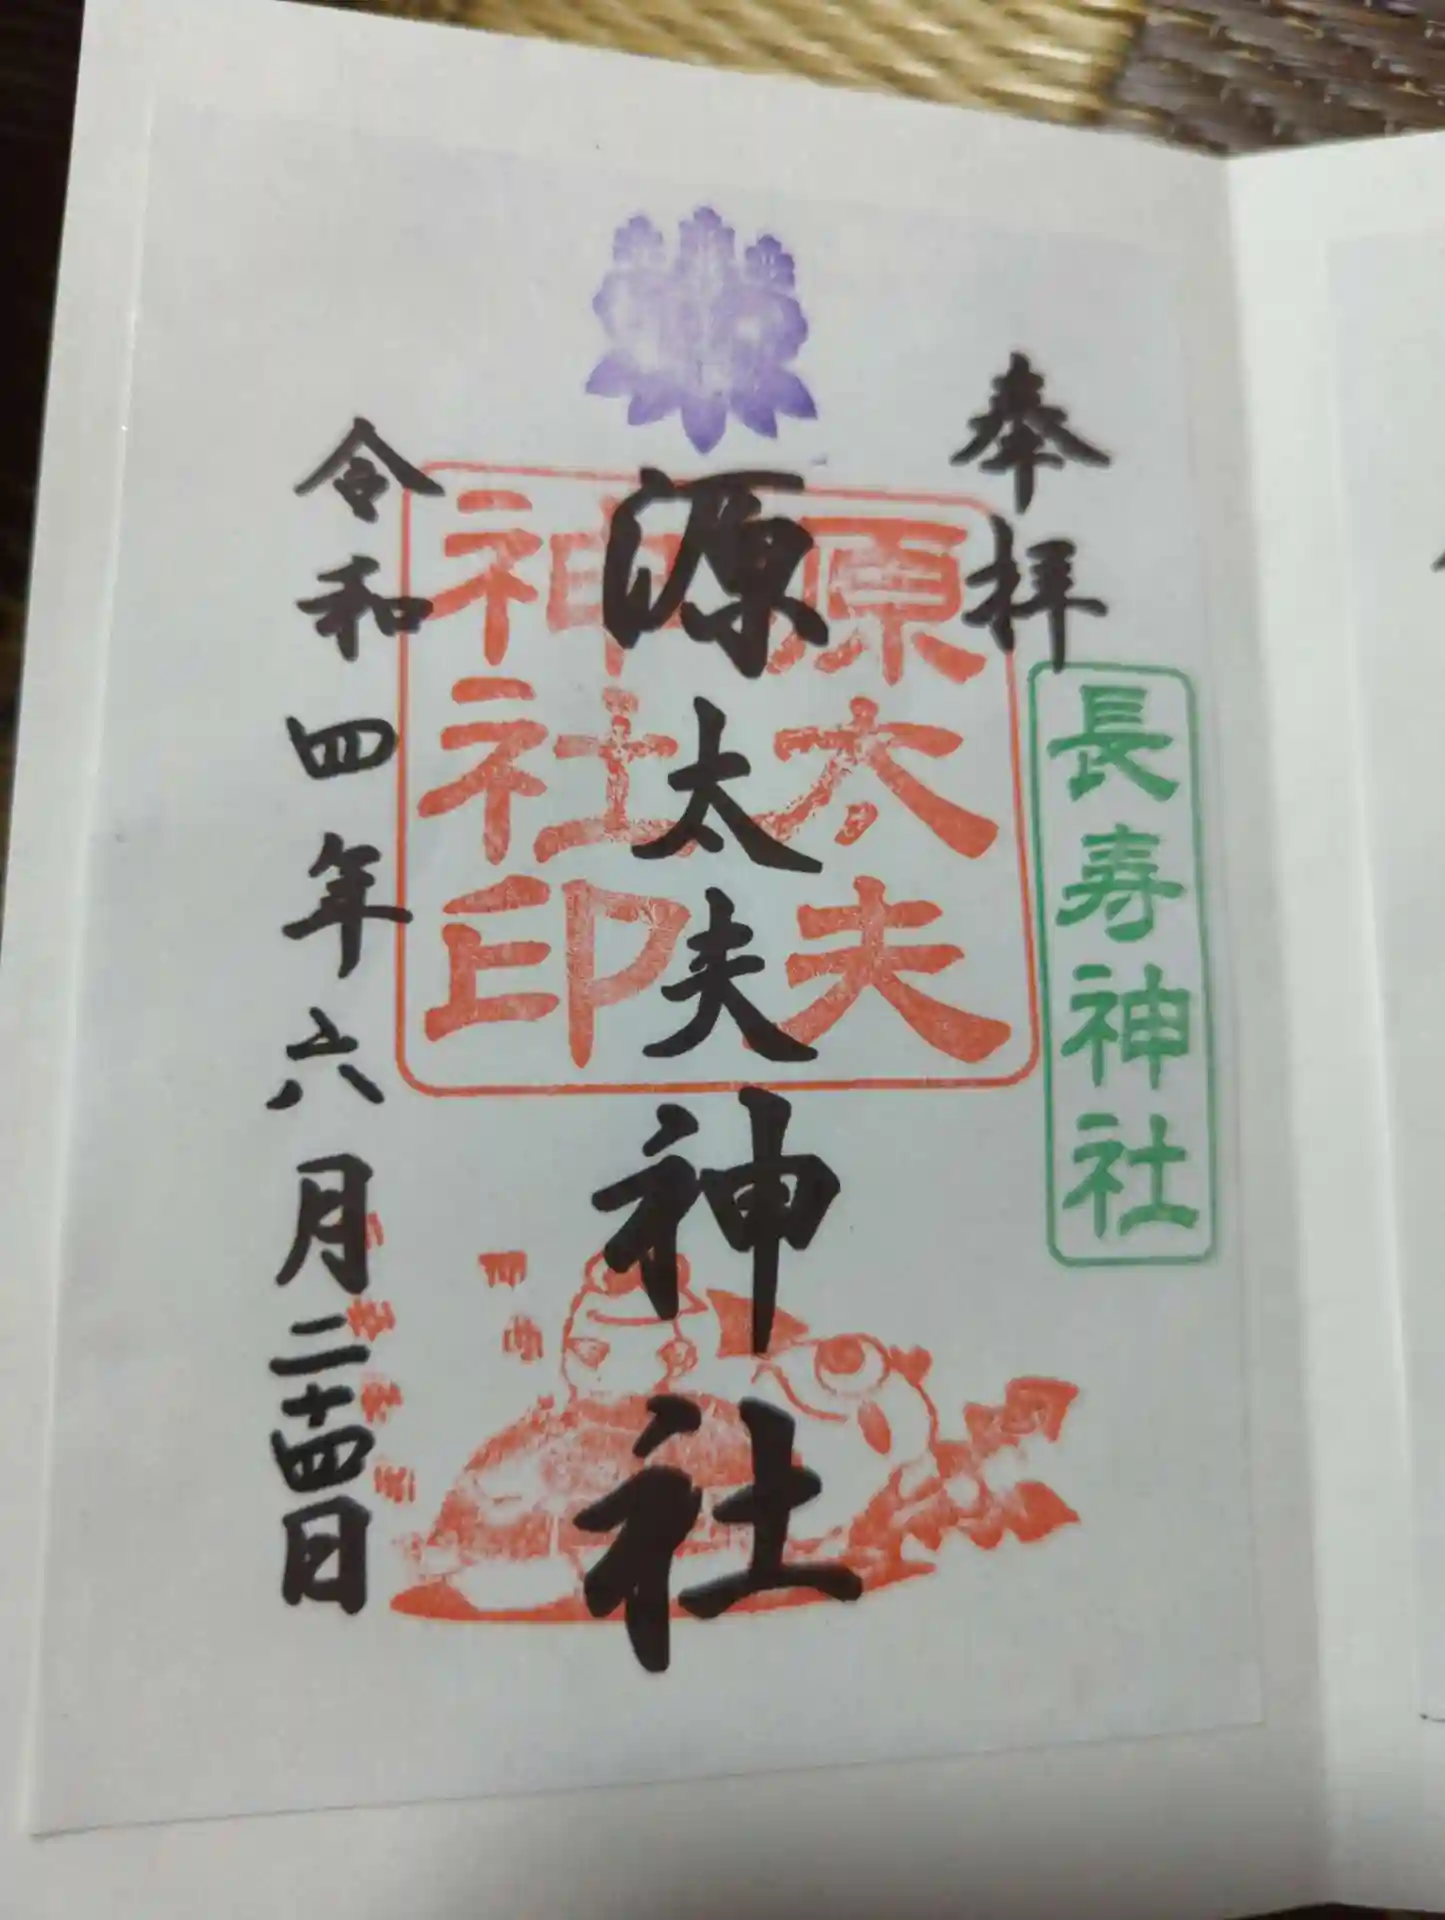 奉拝
長寿神社
源太夫神社
原太夫
神社印
令和四年六月二十四日